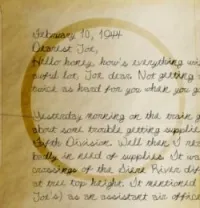 February 10, 1944
Dearest Joe,
Hello honey, how's everything wi
awful lot, Joe dear. Not getting
twice as hard for you when you g
Yesterday morning on the main
about some trouble getting supplie
Fifth Division. Well then I nee
badly in need of supplies. It was
crossings of the River dif
at tree top height. It mentioned
Joe's) as an assistant air office